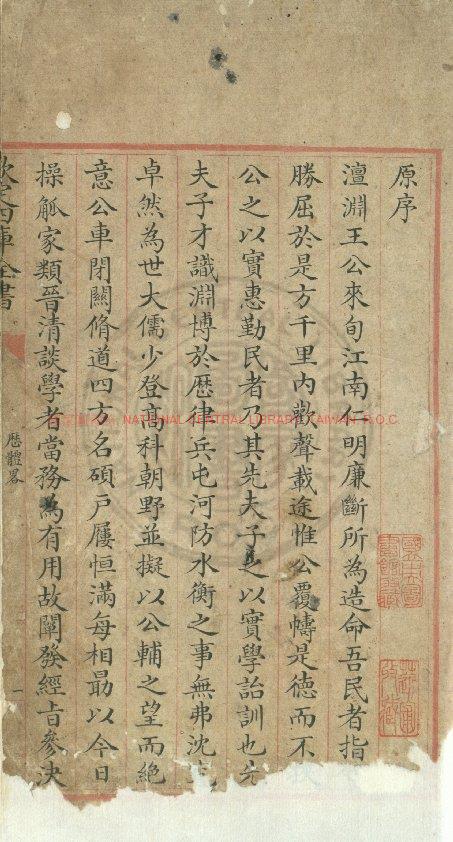 原序
澶淵王公來旬江南仁明廉斷所為造命吾民者指
勝屈於是方千里內歡聲載途惟公覆幬是德而不
公之以實惠勤民者乃其先夫子之以實學詒訓也先
夫子才識淵博於歷律兵屯河防水衡之事無弗沈
卓然為世大儒少登高科朝野並擬以公輔之望而絕
意公車閉關脩道四方名碩戶屨恒滿每相勗以今日
操觚家類晉清談學者當務為有用故闡發經旨參決
欽定四庫全書
歷體畧
一
NATIONAL CENTRAL LIBRARY, TAIWAN, R.O.C